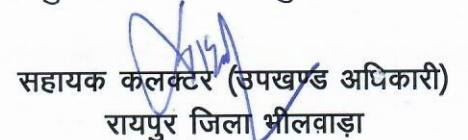 सहायक कलक्टर (उपखण्ड अधिकारी)
रायपुर जिला भीलवाड़ा